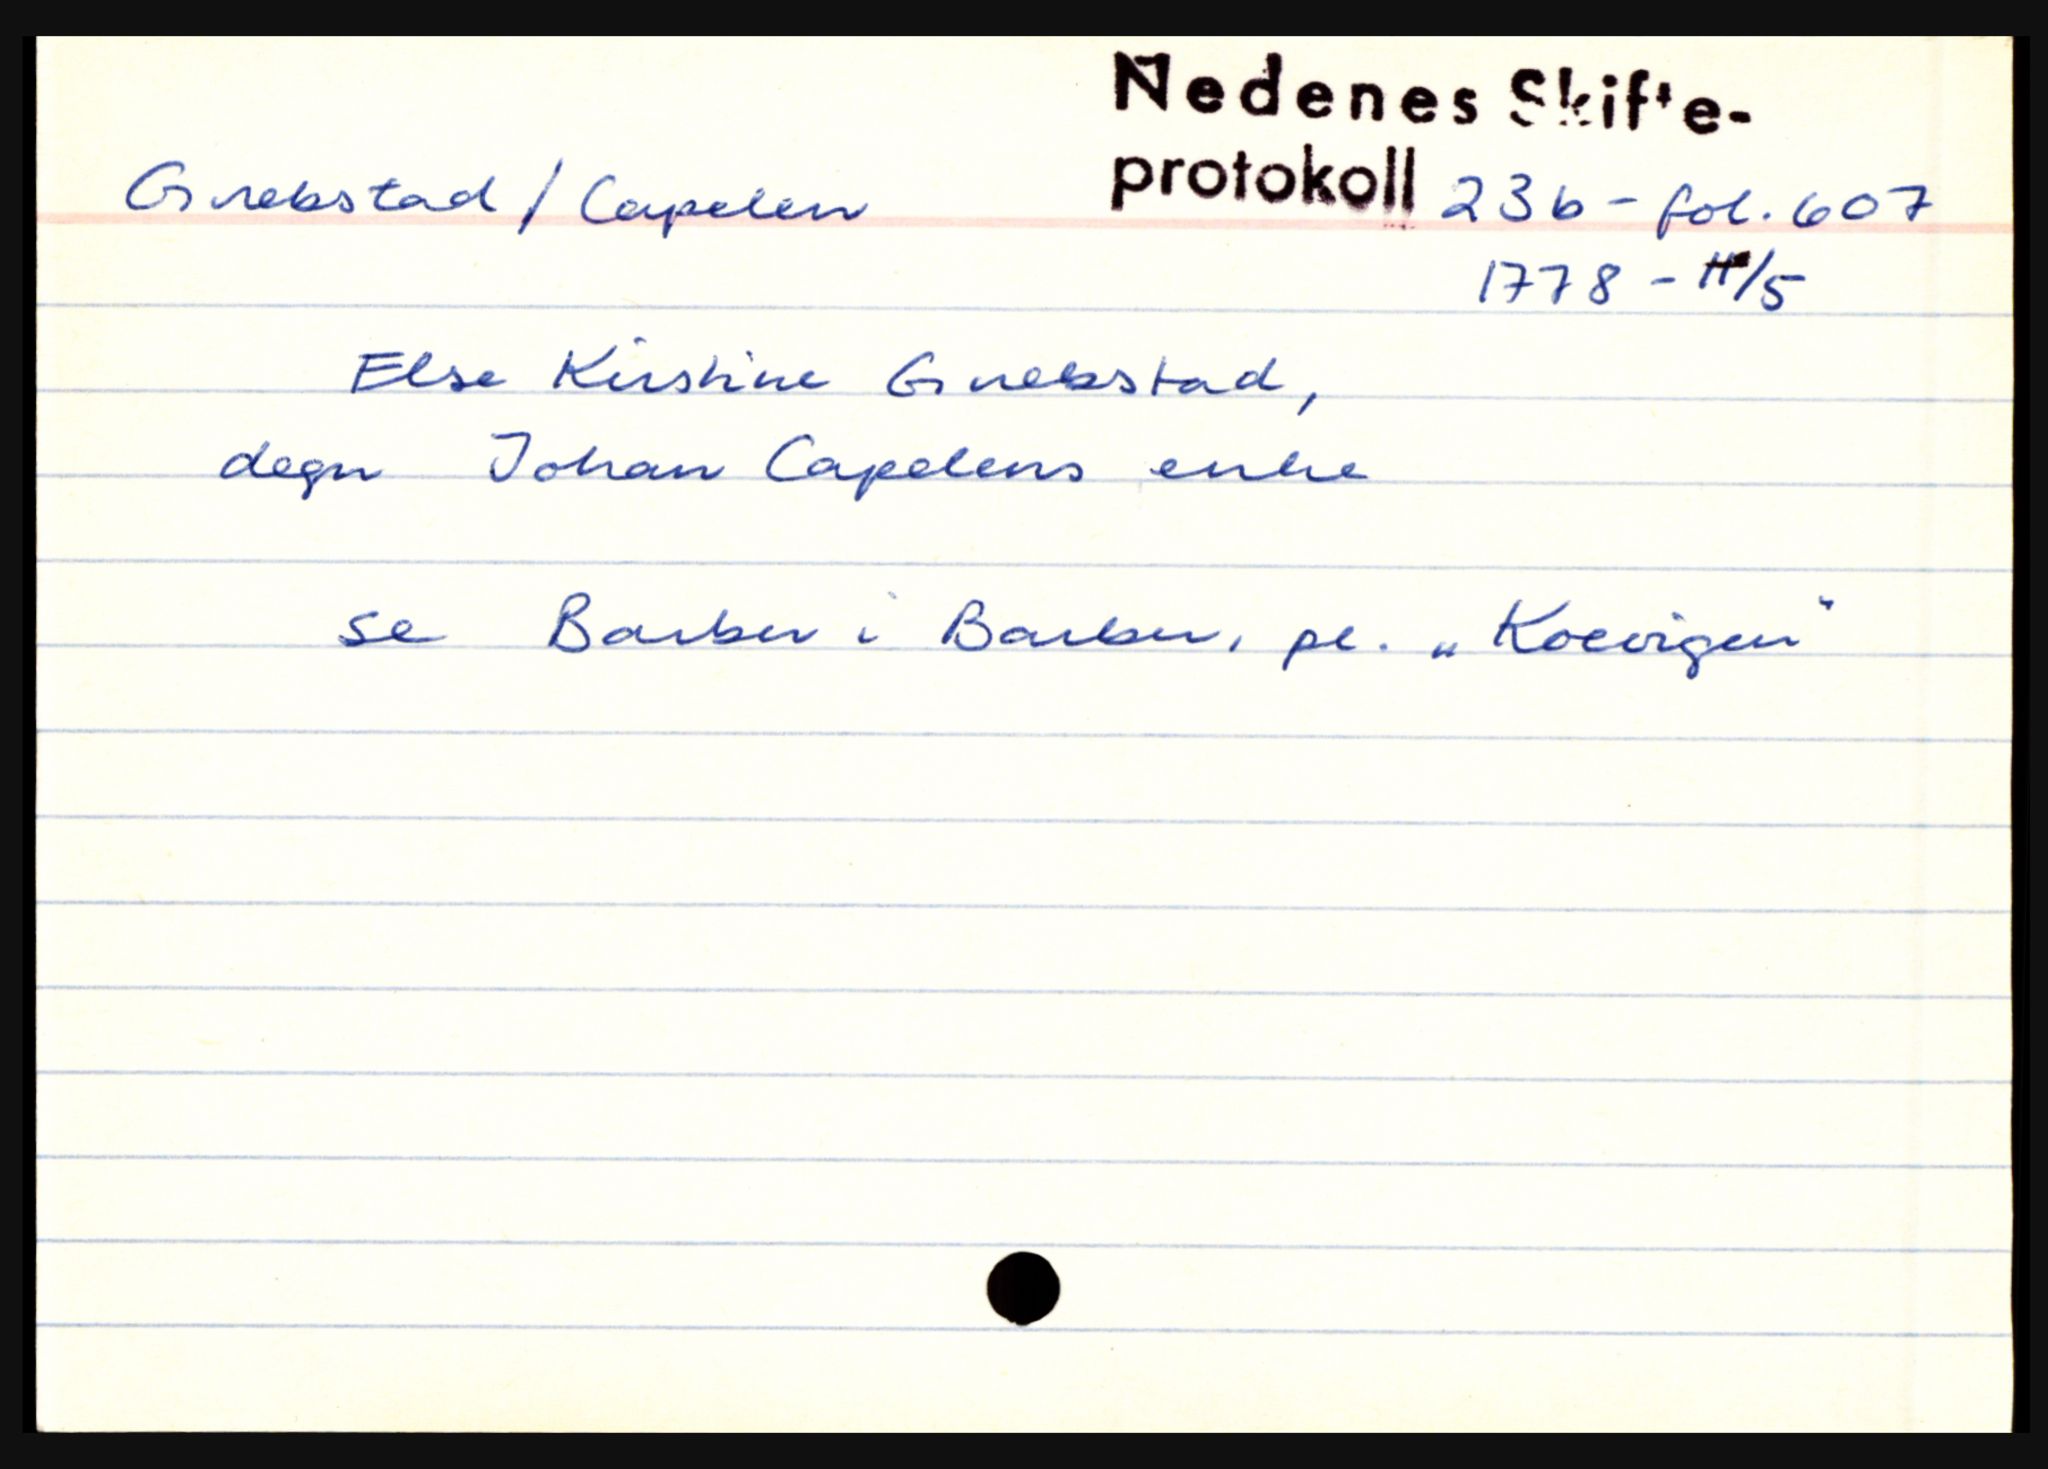 Nedenes Skifte-
protokoll 23b - fol. 607
Grebstad / Capelen
1778 - 11/5
Else Kirstine Grebstad,
degn Johan Capelens enke
se Barber i Barber, pl. „Koevigen"